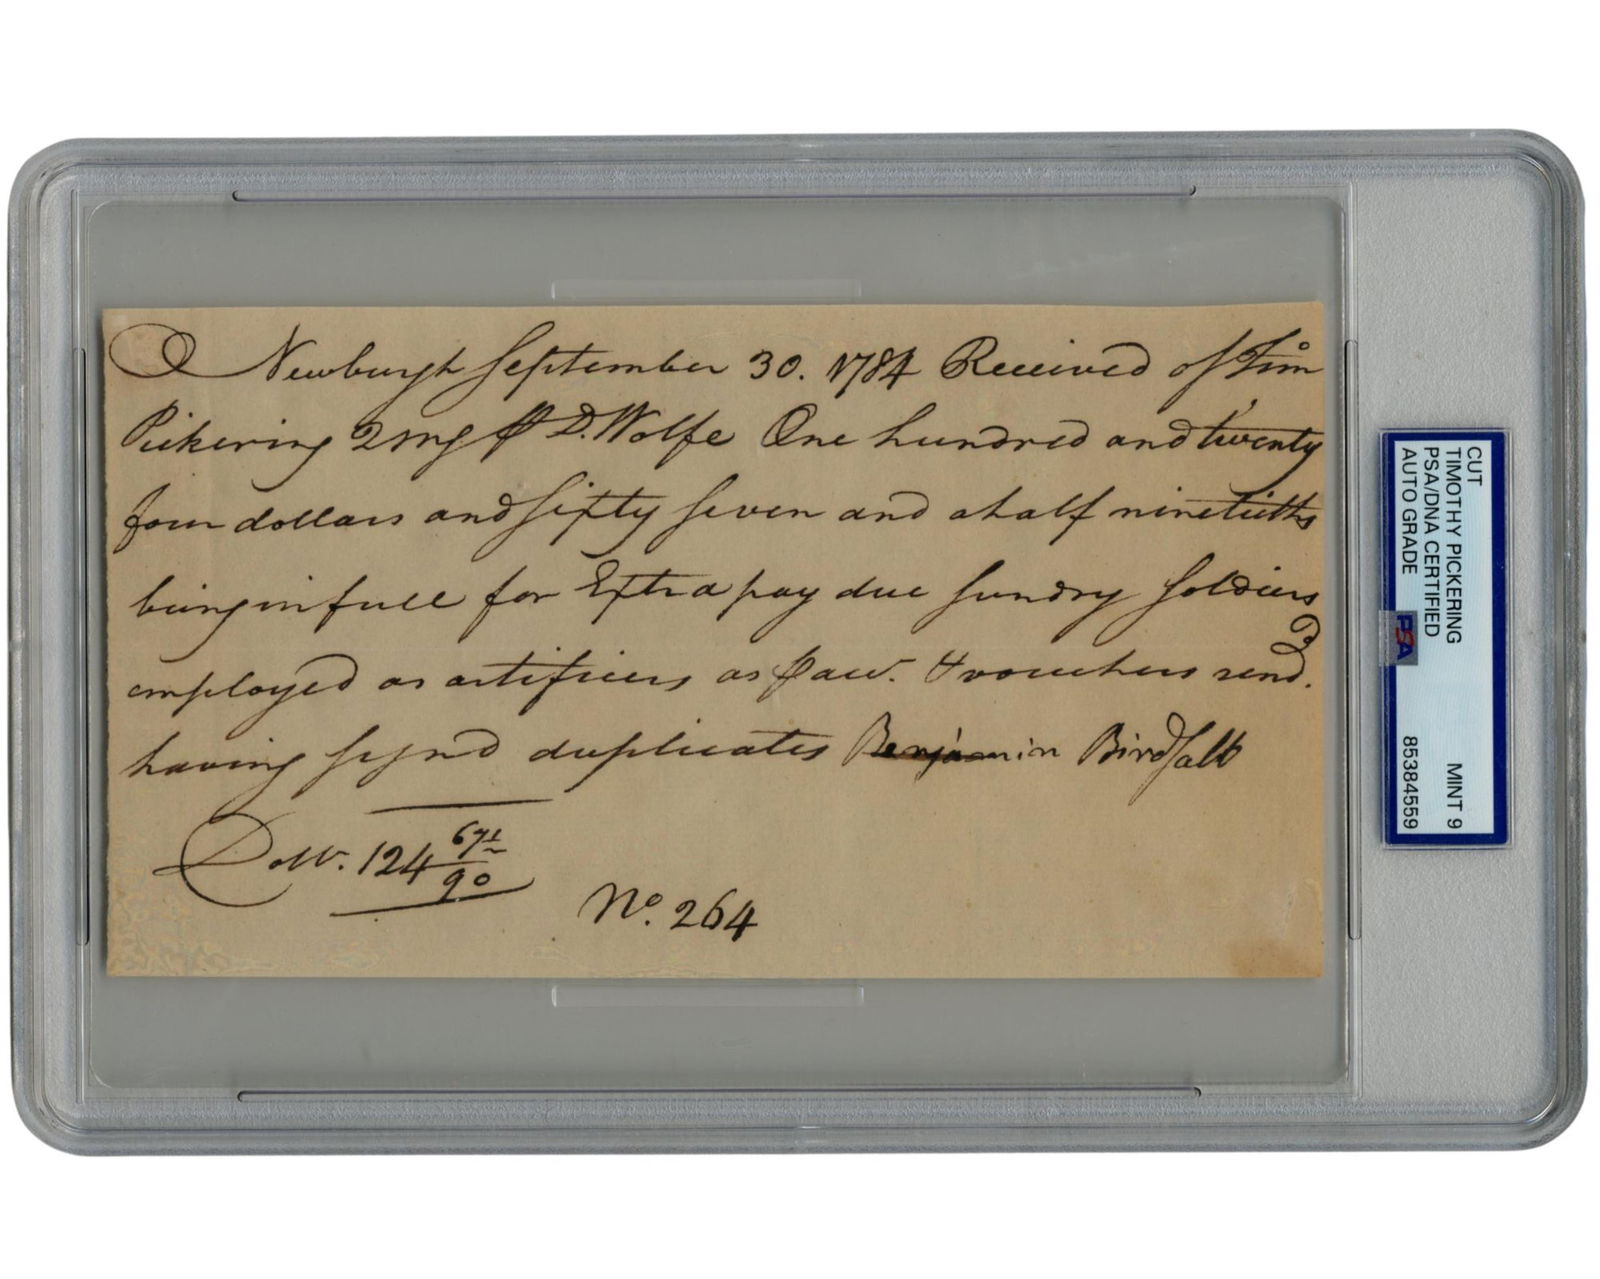 Newburgh September 30. 1784 Received of Tim
Pickering QMG ⅌ D. Wolfe One hundred and twenty
four dollars and fifty seven and a half ninetieths
being in full for Extra pay due sundry soldiers
employed as artificers as ⅌ acc. & vouchers rend.
having sign'd duplicates Benjamin Birdsall
Doll. 124 67½/90
No. 264
CUT
TIMOTHY PICKERING
PSA/DNA CERTIFIED
AUTO GRADE MINT 9
85384559
PSA